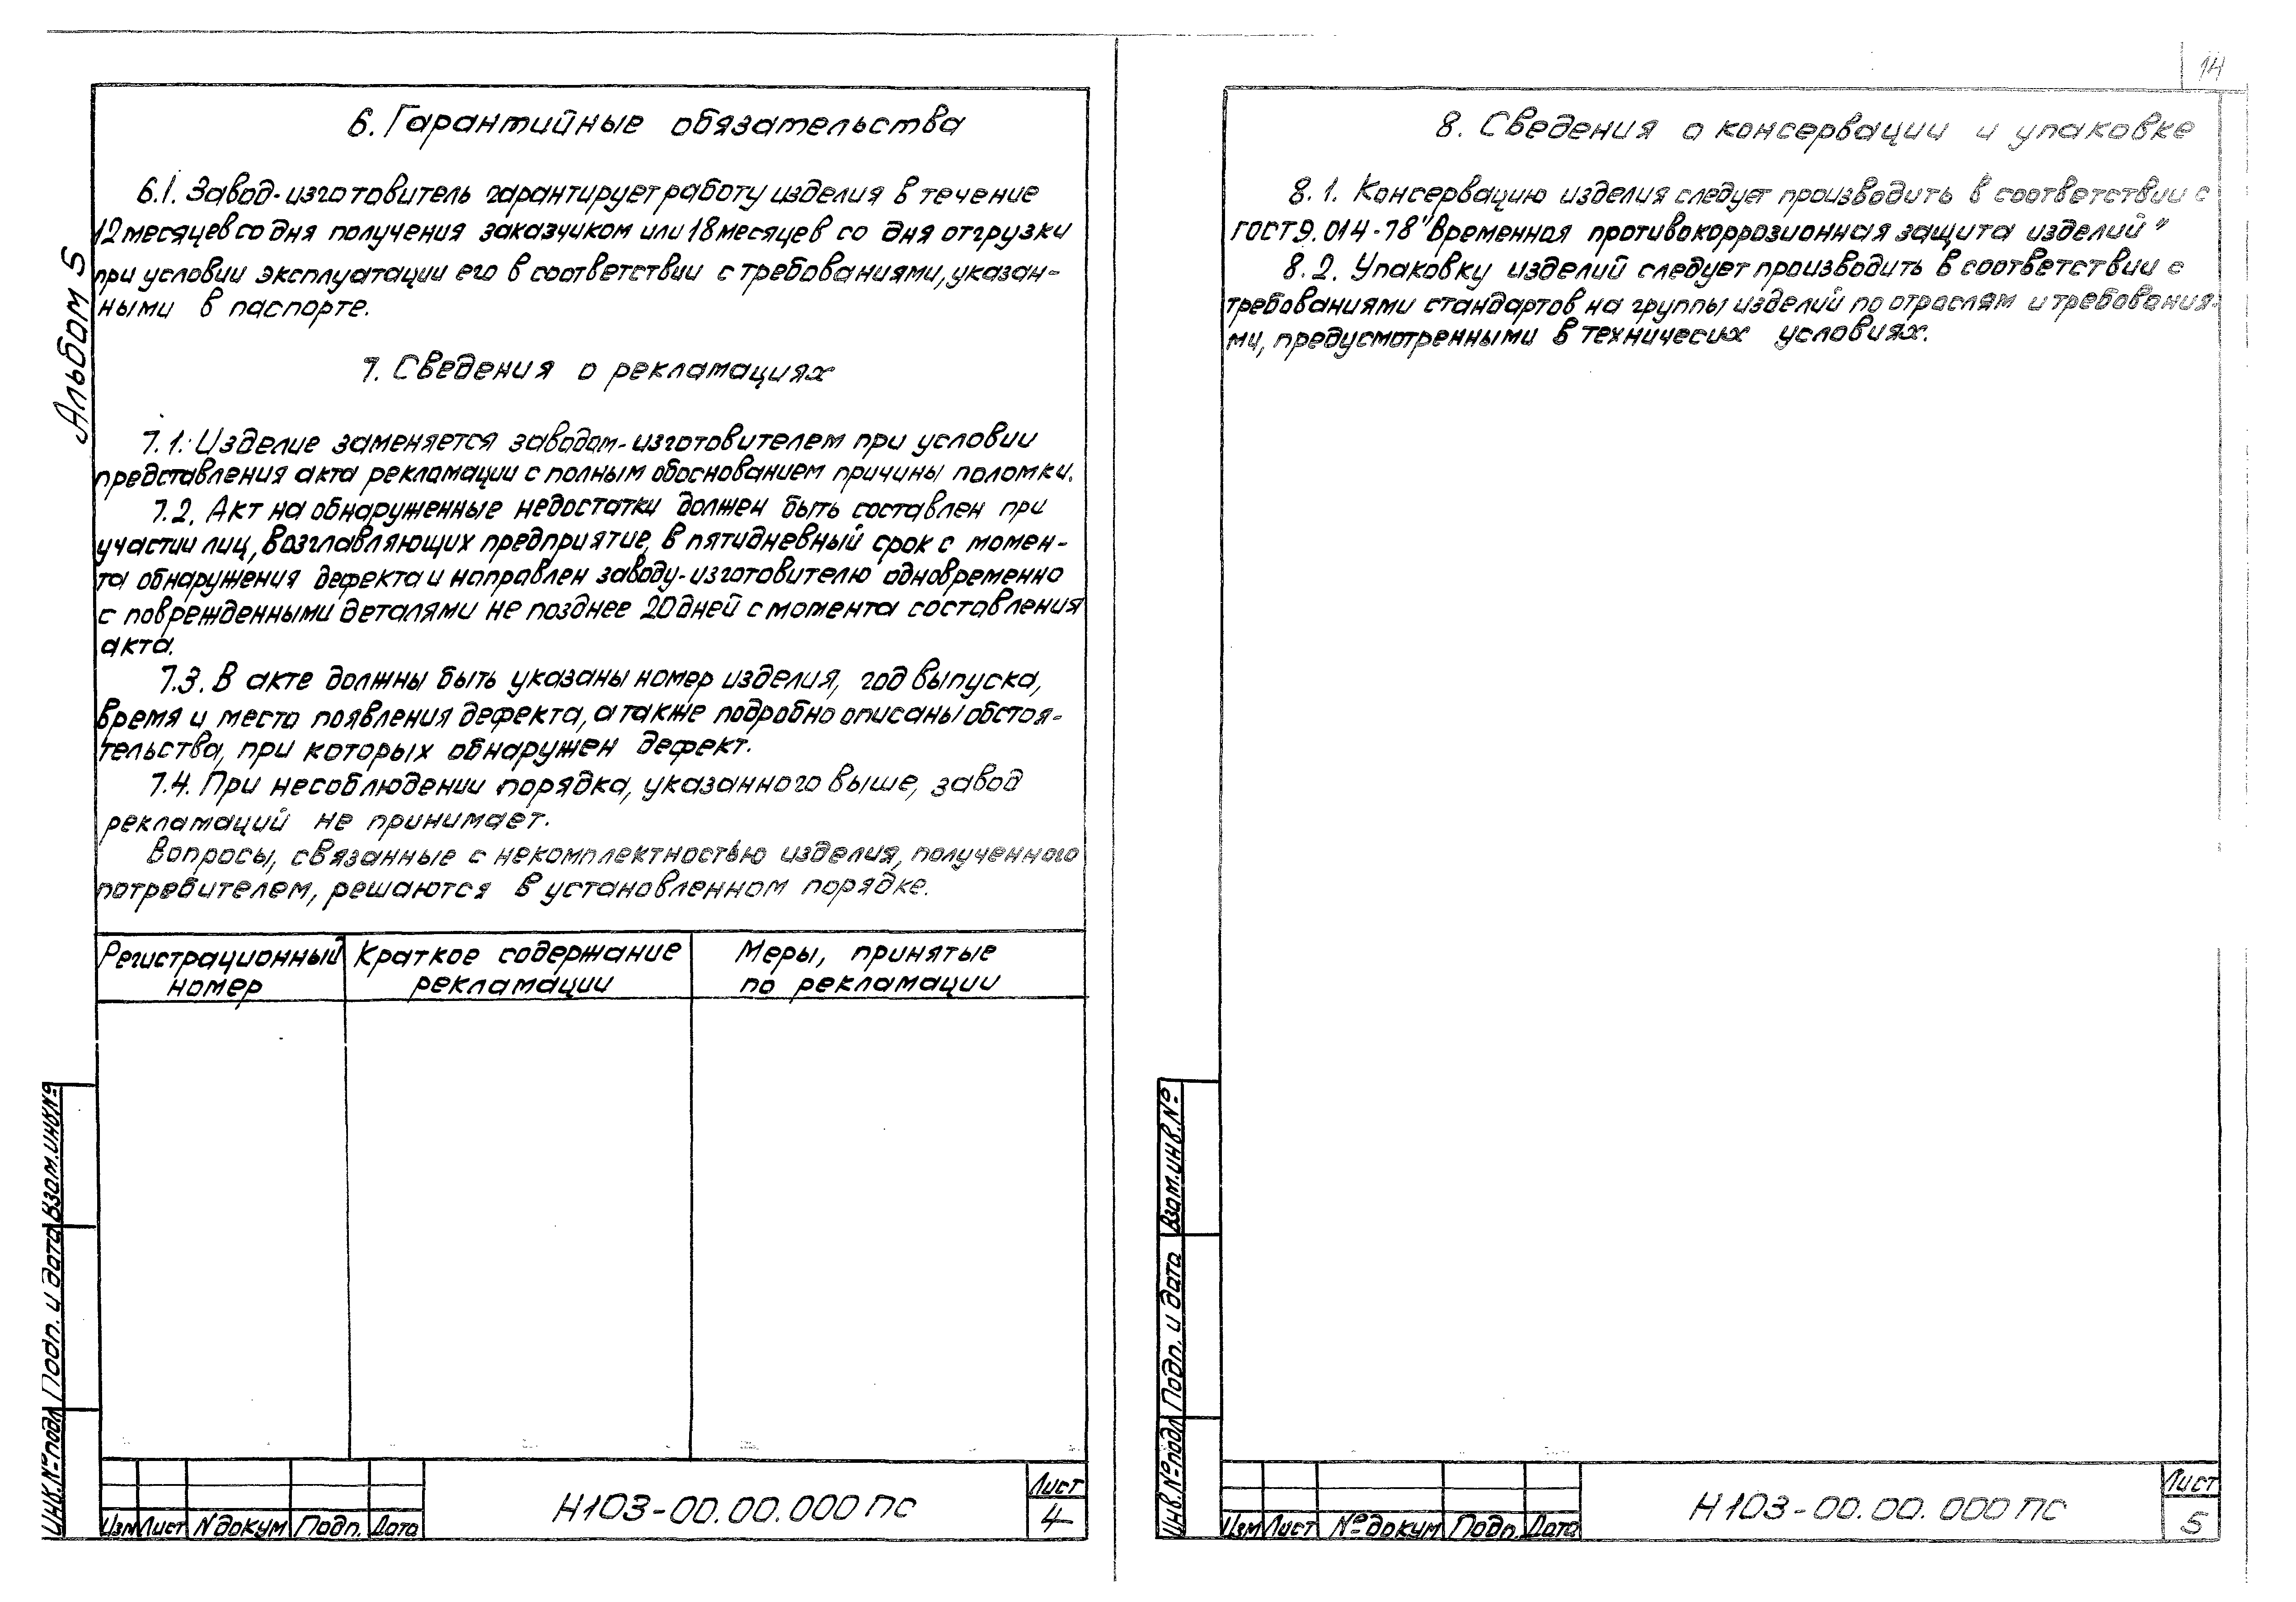 Альбом 5
6. Гарантийные обязательства
6.1. Завод-изготовитель гарантирует работу изделия в течение
12 месяцев со дня получения заказчиком или 18 месяцев со дня отгрузки
при условии эксплуатации его в соответствии с требованиями, указан-
ными в паспорте.
7. Сведения о рекламациях
7.1. Изделие заменяется заводом-изготовителем при условии
представления акта рекламации с полным обоснованием причины поломки.
7.2. Акт на обнаруженные недостатки должен быть составлен при
участии лиц, возглавляющих предприятие, в пятидневный срок с момен-
та обнаружения дефекта и направлен заводу-изготовителю одновременно
с поврежденными деталями не позднее 20 дней с момента составления
акта.
7.3. В акте должны быть указаны номер изделия, год выпуска,
время и место появления дефекта, а также подробно описаны обстоя-
тельства, при которых обнаружен дефект.
7.4. При несоблюдении порядка, указанного выше, завод
рекламаций не принимает.
Вопросы, связанные с некомплектностью изделия, полученного
потребителем, решаются в установленном порядке.
Регистрационный Краткое содержание Меры, принятые
номер рекламации по рекламации
Инв.№подл Подп. и дата Взам.инв.№
Изм Лист №докум Подп. Дата
Н103-00.00.000 ПС
Лист
4
14
8. Сведения о консервации и упаковке
8.1. Консервацию изделия следует производить в соответствии с
ГОСТ 9.014-78 "Временная противокоррозионная защита изделий"
8.2. Упаковку изделий следует производить в соответствии с
требованиями стандартов на группы изделий по отраслям и требования-
ми, предусмотренными в техничесих условиях.
Инв.№подл Подп. и дата Взам.инв.№
Изм Лист №докум Подп. Дата
Н103-00.00.000 ПС
Лист
5